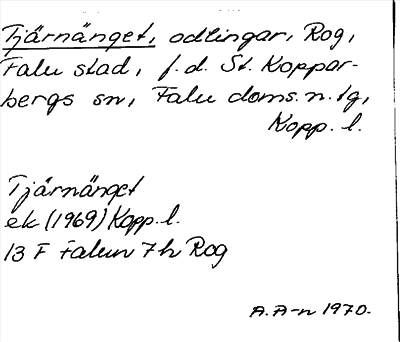 Tjärnänget, odlingar, Rog,
Falu stad, f.d. St. Koppar-
bergs sn, Falu doms.n.tg,
Kopp. l.
Tjärnänget
ek (1969) Kopp. l.
13 F Falun 7h Rog
A. A-n 1970.